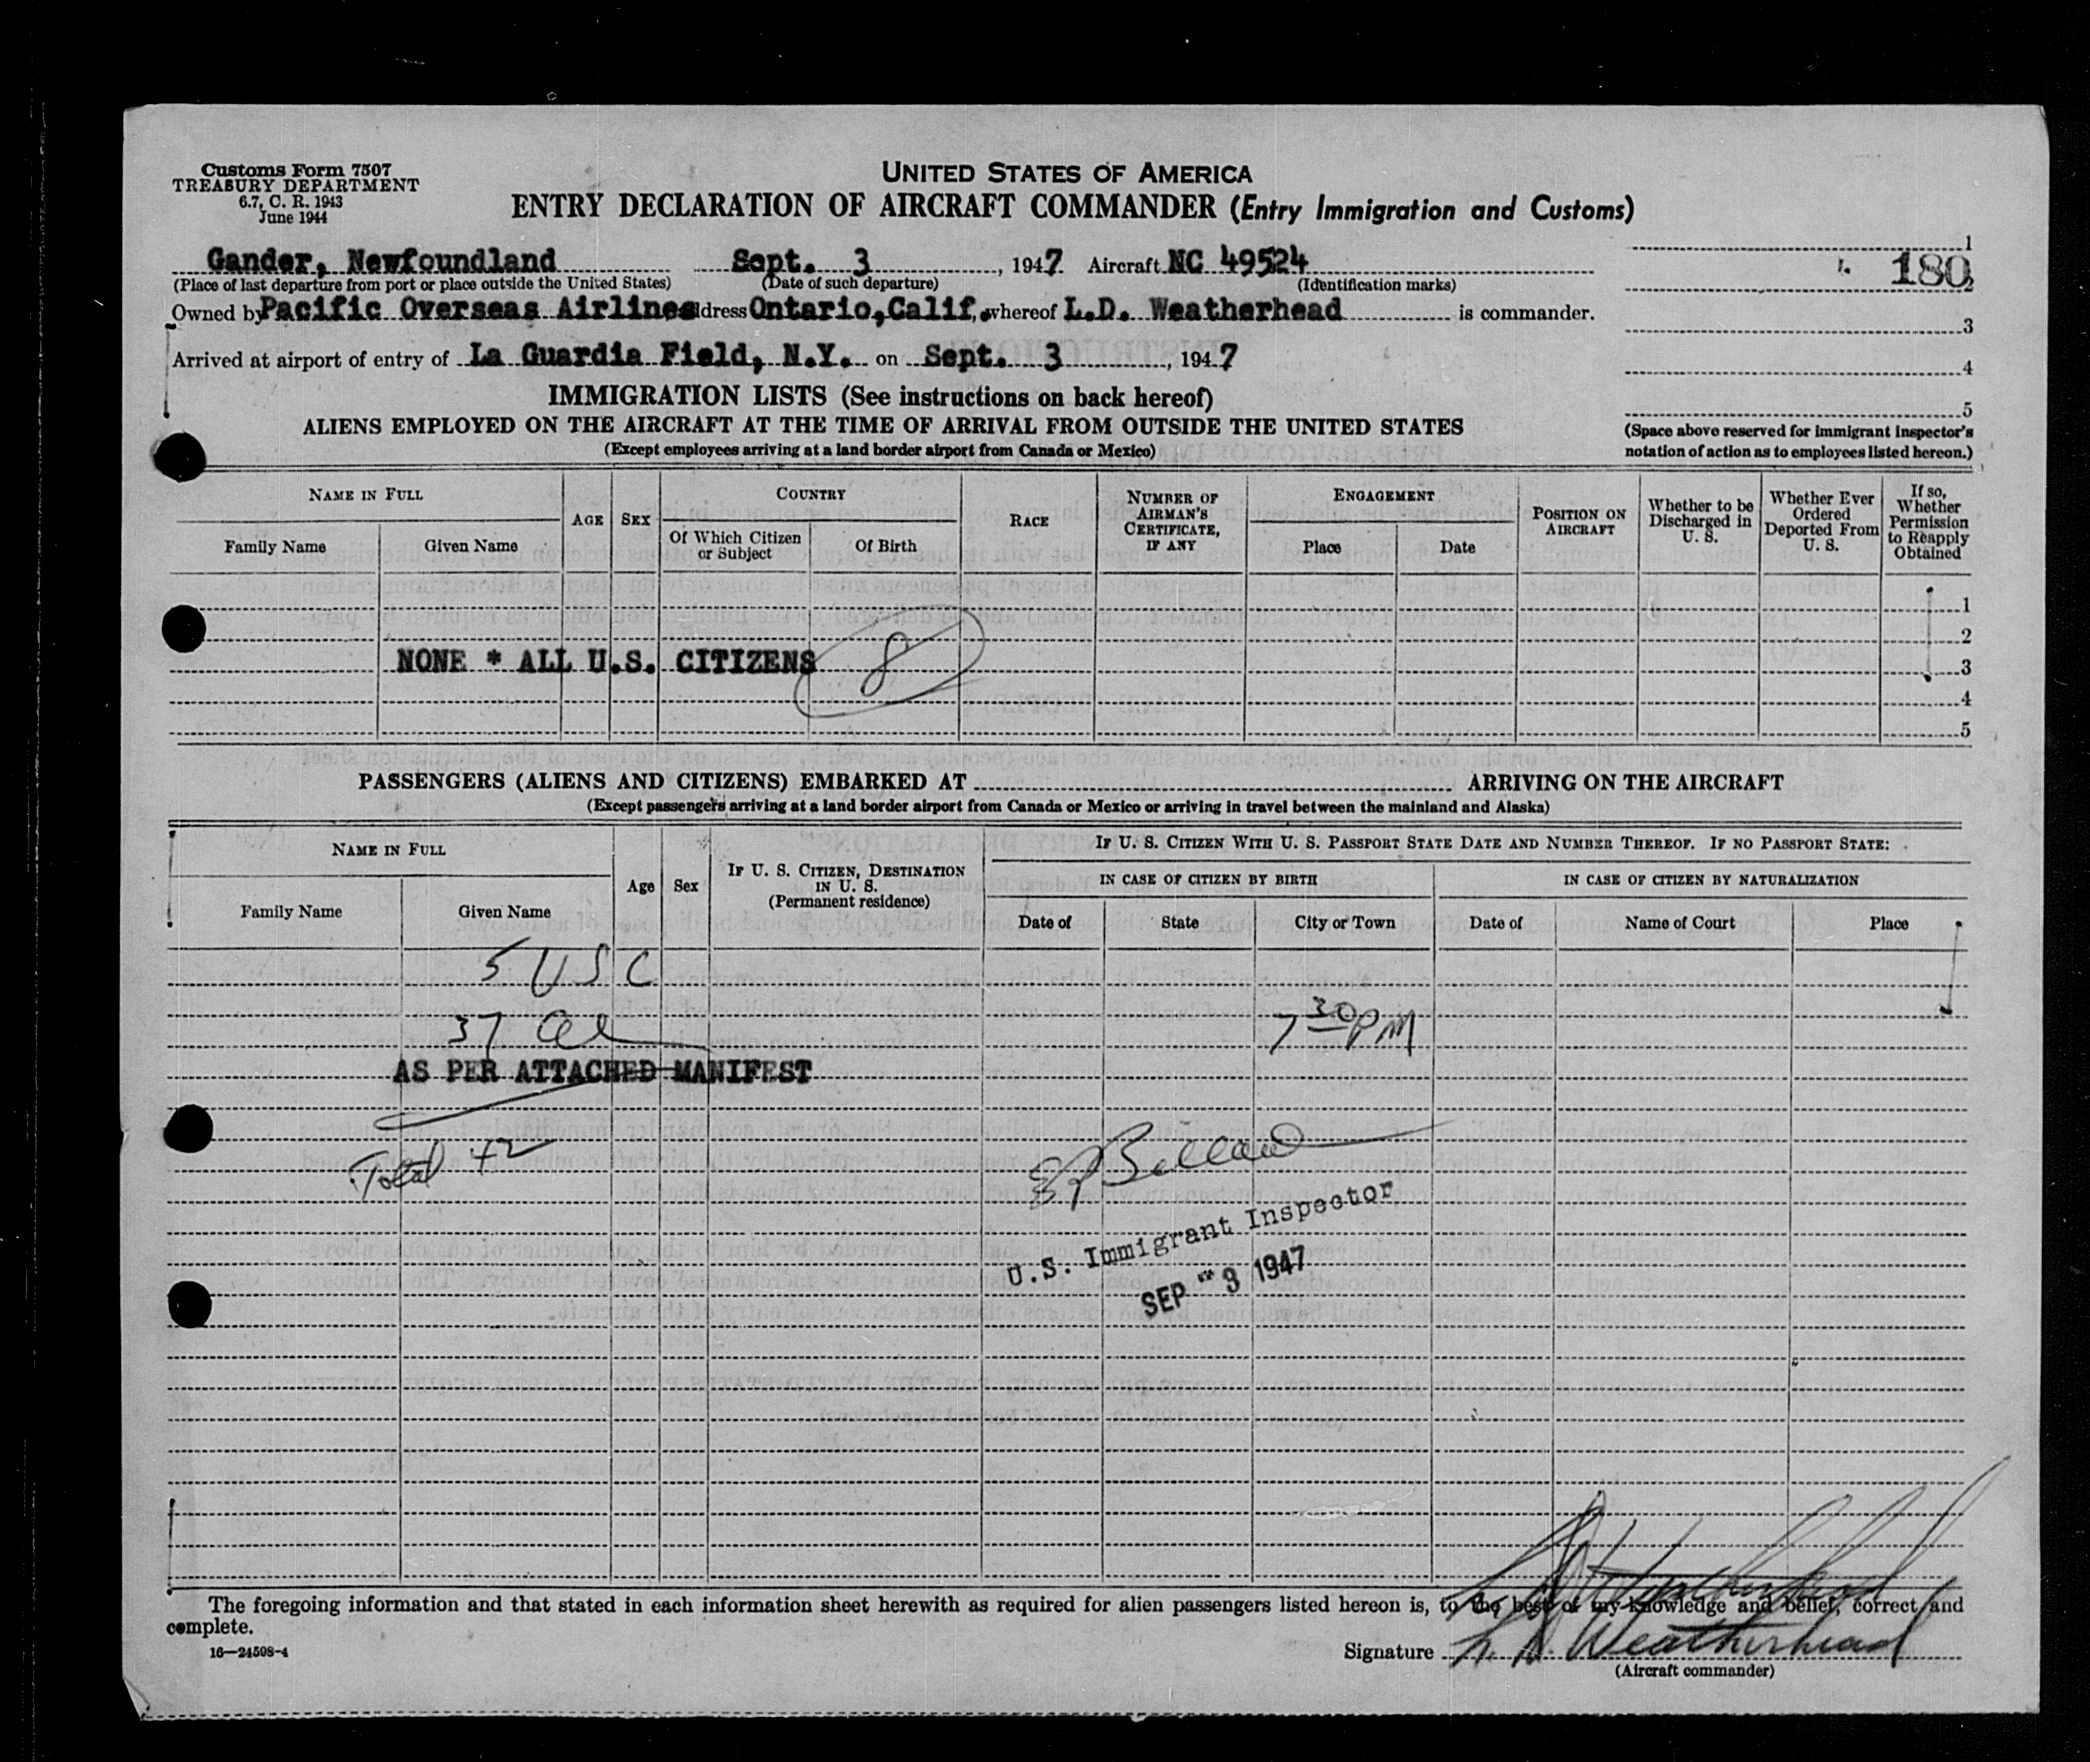 Customs Form 7507
TREASURY DEPARTMENT
6.7, C. R. 1943
June 1944
UNITED STATES OF AMERICA
ENTRY DECLARATION OF AIRCRAFT COMMANDER (Entry Immigration and Customs)
Gander, Newfoundland Sept. 3, 1947 Aircraft NC 49524
(Place of last departure from port or place outside the United States) (Date of such departure) (Identification marks)
1
180
2
Owned by Pacific Overseas Airlines dress Ontario, Calif., whereof L.D. Weatherhead is commander.
3
Arrived at airport of entry of La Guardia Field, N.Y. on Sept. 3, 1947
4
IMMIGRATION LISTS (See instructions on back hereof)
5
ALIENS EMPLOYED ON THE AIRCRAFT AT THE TIME OF ARRIVAL FROM OUTSIDE THE UNITED STATES
(Except employees arriving at a land border airport from Canada or Mexico)
(Space above reserved for immigrant inspector's
notation of action as to employees listed hereon.)
NAME IN FULL
Family Name
Given Name
AGE
SEX
COUNTRY
Of Which Citizen
or Subject
Of Birth
RACE
NUMBER OF
AIRMAN'S
CERTIFICATE,
IF ANY
ENGAGEMENT
Place
Date
POSITION ON
AIRCRAFT
Whether to be
Discharged in
U. S.
Whether Ever
Ordered
Deported From
U. S.
If so,
Whether
Permission
to Reapply
Obtained
1
2
NONE * ALL U.S. CITIZENS 8
3
4
5
PASSENGERS (ALIENS AND CITIZENS) EMBARKED AT ARRIVING ON THE AIRCRAFT
(Except passengers arriving at a land border airport from Canada or Mexico or arriving in travel between the mainland and Alaska)
NAME IN FULL
Family Name
Given Name
Age
Sex
IF U. S. CITIZEN, DESTINATION
IN U. S.
(Permanent residence)
IF U. S. CITIZEN WITH U. S. PASSPORT STATE DATE AND NUMBER THEREOF. IF NO PASSPORT STATE:
IN CASE OF CITIZEN BY BIRTH
IN CASE OF CITIZEN BY NATURALIZATION
Date of
State
City or Town
Date of
Name of Court
Place
5 USC
37 al
7 30 PM
AS PER ATTACHED MANIFEST
Total 42
U.S. Immigrant Inspector
SEP 3 1947
The foregoing information and that stated in each information sheet herewith as required for alien passengers listed hereon is, to the best of my knowledge and belief, correct and
complete.
16—24508-4
Signature L. D. Weatherhead
(Aircraft commander)